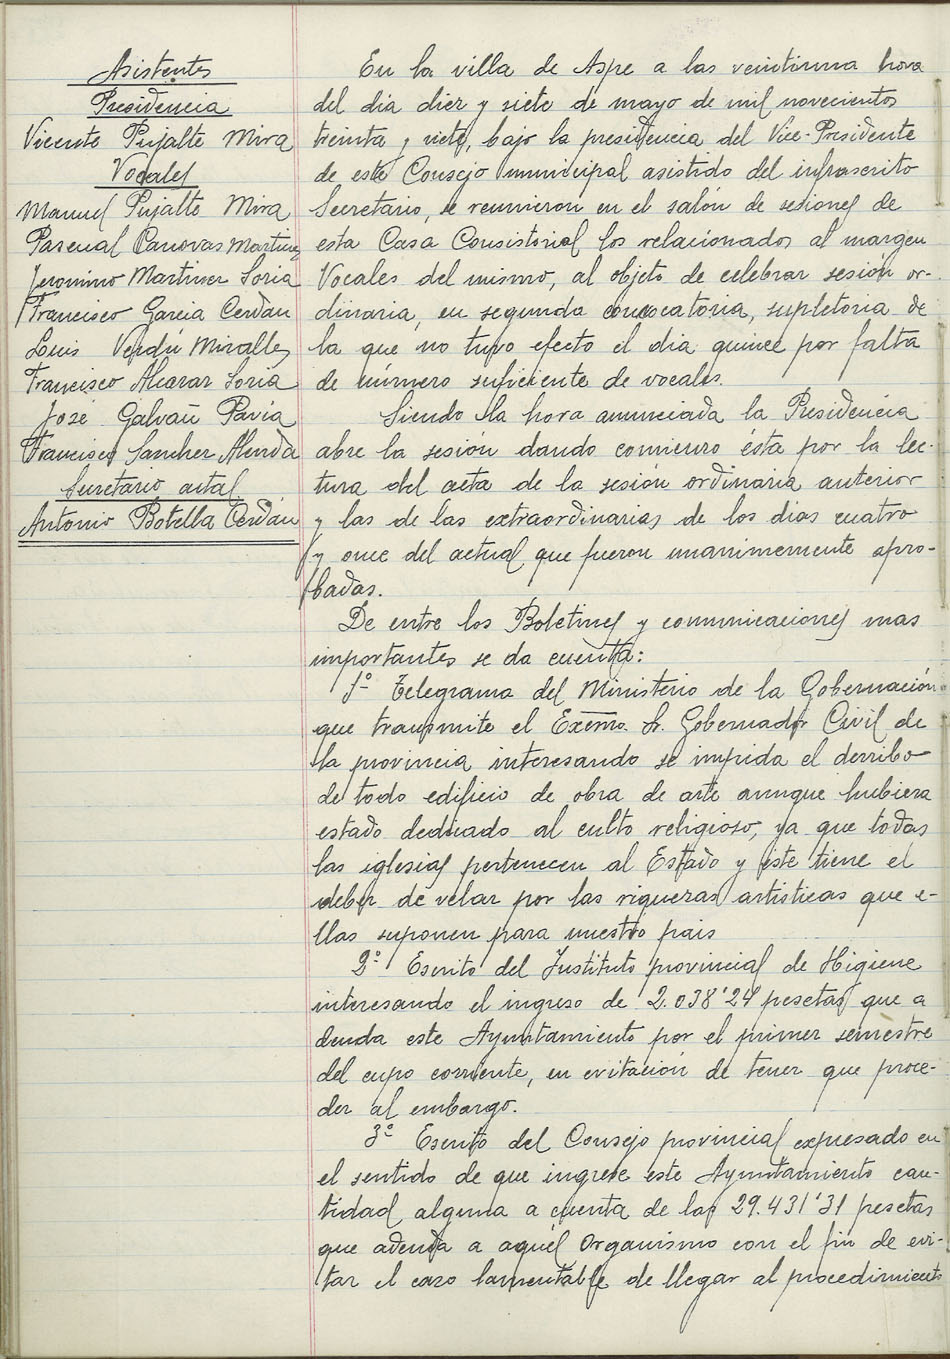 Asistentes
Presidencia
Vicente Pujalte Mira
Vocales
Manuel Pujalte Mira
Pascual Canovas Martinez
Jeronimo Martinez Soria
Francisco Garcia Cerdán
Luis Verdú Miralles
Francisco Alcaraz Soria
José Galvañ Pavia
Francisco Sanchez Almda
Secretario actal
Antonio Botella Cerdán
En la villa de Aspe a las veintiuna hora
del dia diez y siete de mayo de mil novecientos
treinta y siete, bajo la presidencia del Vice-Presidente
de este Consejo municipal asistido del infrascrito
Secretario, se reunieron en el salón de sesiones de
esta Casa Consistorial los relacionados al margen
Vocales del mismo, al objeto de celebrar sesión or-
dinaria, en segunda convocatoria, supletoria de
la que no tuvo efecto el dia quince por falta
de número suficiente de vocales.
Siendo la hora anunciada la Presidencia
abre la sesión dando comienzo ésta por la lec-
tura del acta de la sesión ordinaria anterior
y las de las extraordinarias de los dias cuatro
y once del actual que fueron unanimemente apro-
badas.
De entre los Boletines y comunicaciones mas
importantes se da cuenta:
1º Telegrama del Ministerio de la Gobernación
que transmite el Excmo. Sr. Gobernador Civil de
la provincia interesando se impida el derribo
de todo edificio de obra de arte aunque hubiera
estado dedicado al culto religioso, ya que todas
las iglesias pertenecen al Estado y éste tiene el
deber de velar por las riquezas artisticas que e-
llas suponen para nuestro pais
2º Escrito del Instituto provincial de Higiene
interesando el ingreso de 2.038'24 pesetas que a
deuda este Ayuntamiento por el primer semestre
del cupo corriente, en evitación de tener que proce-
der al embargo.
3º Escrito del Consejo provincial expresado en
el sentido de que ingrese este Ayuntamiento can-
tidad alguna a cuenta de las 29.431'31 pesetas
que adeuda a aquél Organismo con el fin de evi-
tar el caso lamentable de llegar al procedimiento